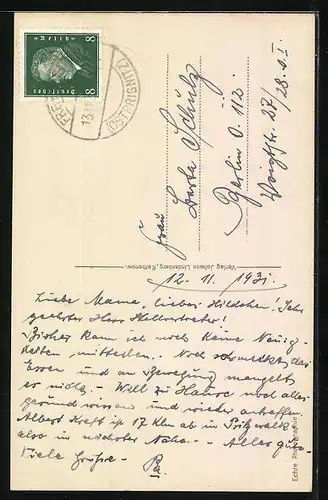 8 Reich 8
Deutsches
(OSTPRIGNITZ)
Frau
Berta Schulz
Berlin O. 112
Voigtstr. 27/28. I.
Verlag Johann Lindenberg, Rathenow.
12. 11. 1931.
Liebe Mama, lieber Hildchen! Sehr
geehrter Herr Stellvertreter!
Bisher kann ich noch keine Neuig-
keiten mitteilen. Noch schmeckt das
Essen und an Bewegung mangelt
es nicht. – Will zu Hause noch alles
gesund wissen und wieder antreffen.
Albert Kreft ist 17 Klm ab in Pritzwalk
also in nächster Nähe. – Alles gute
Viele Grüsse –
Echte Photographie